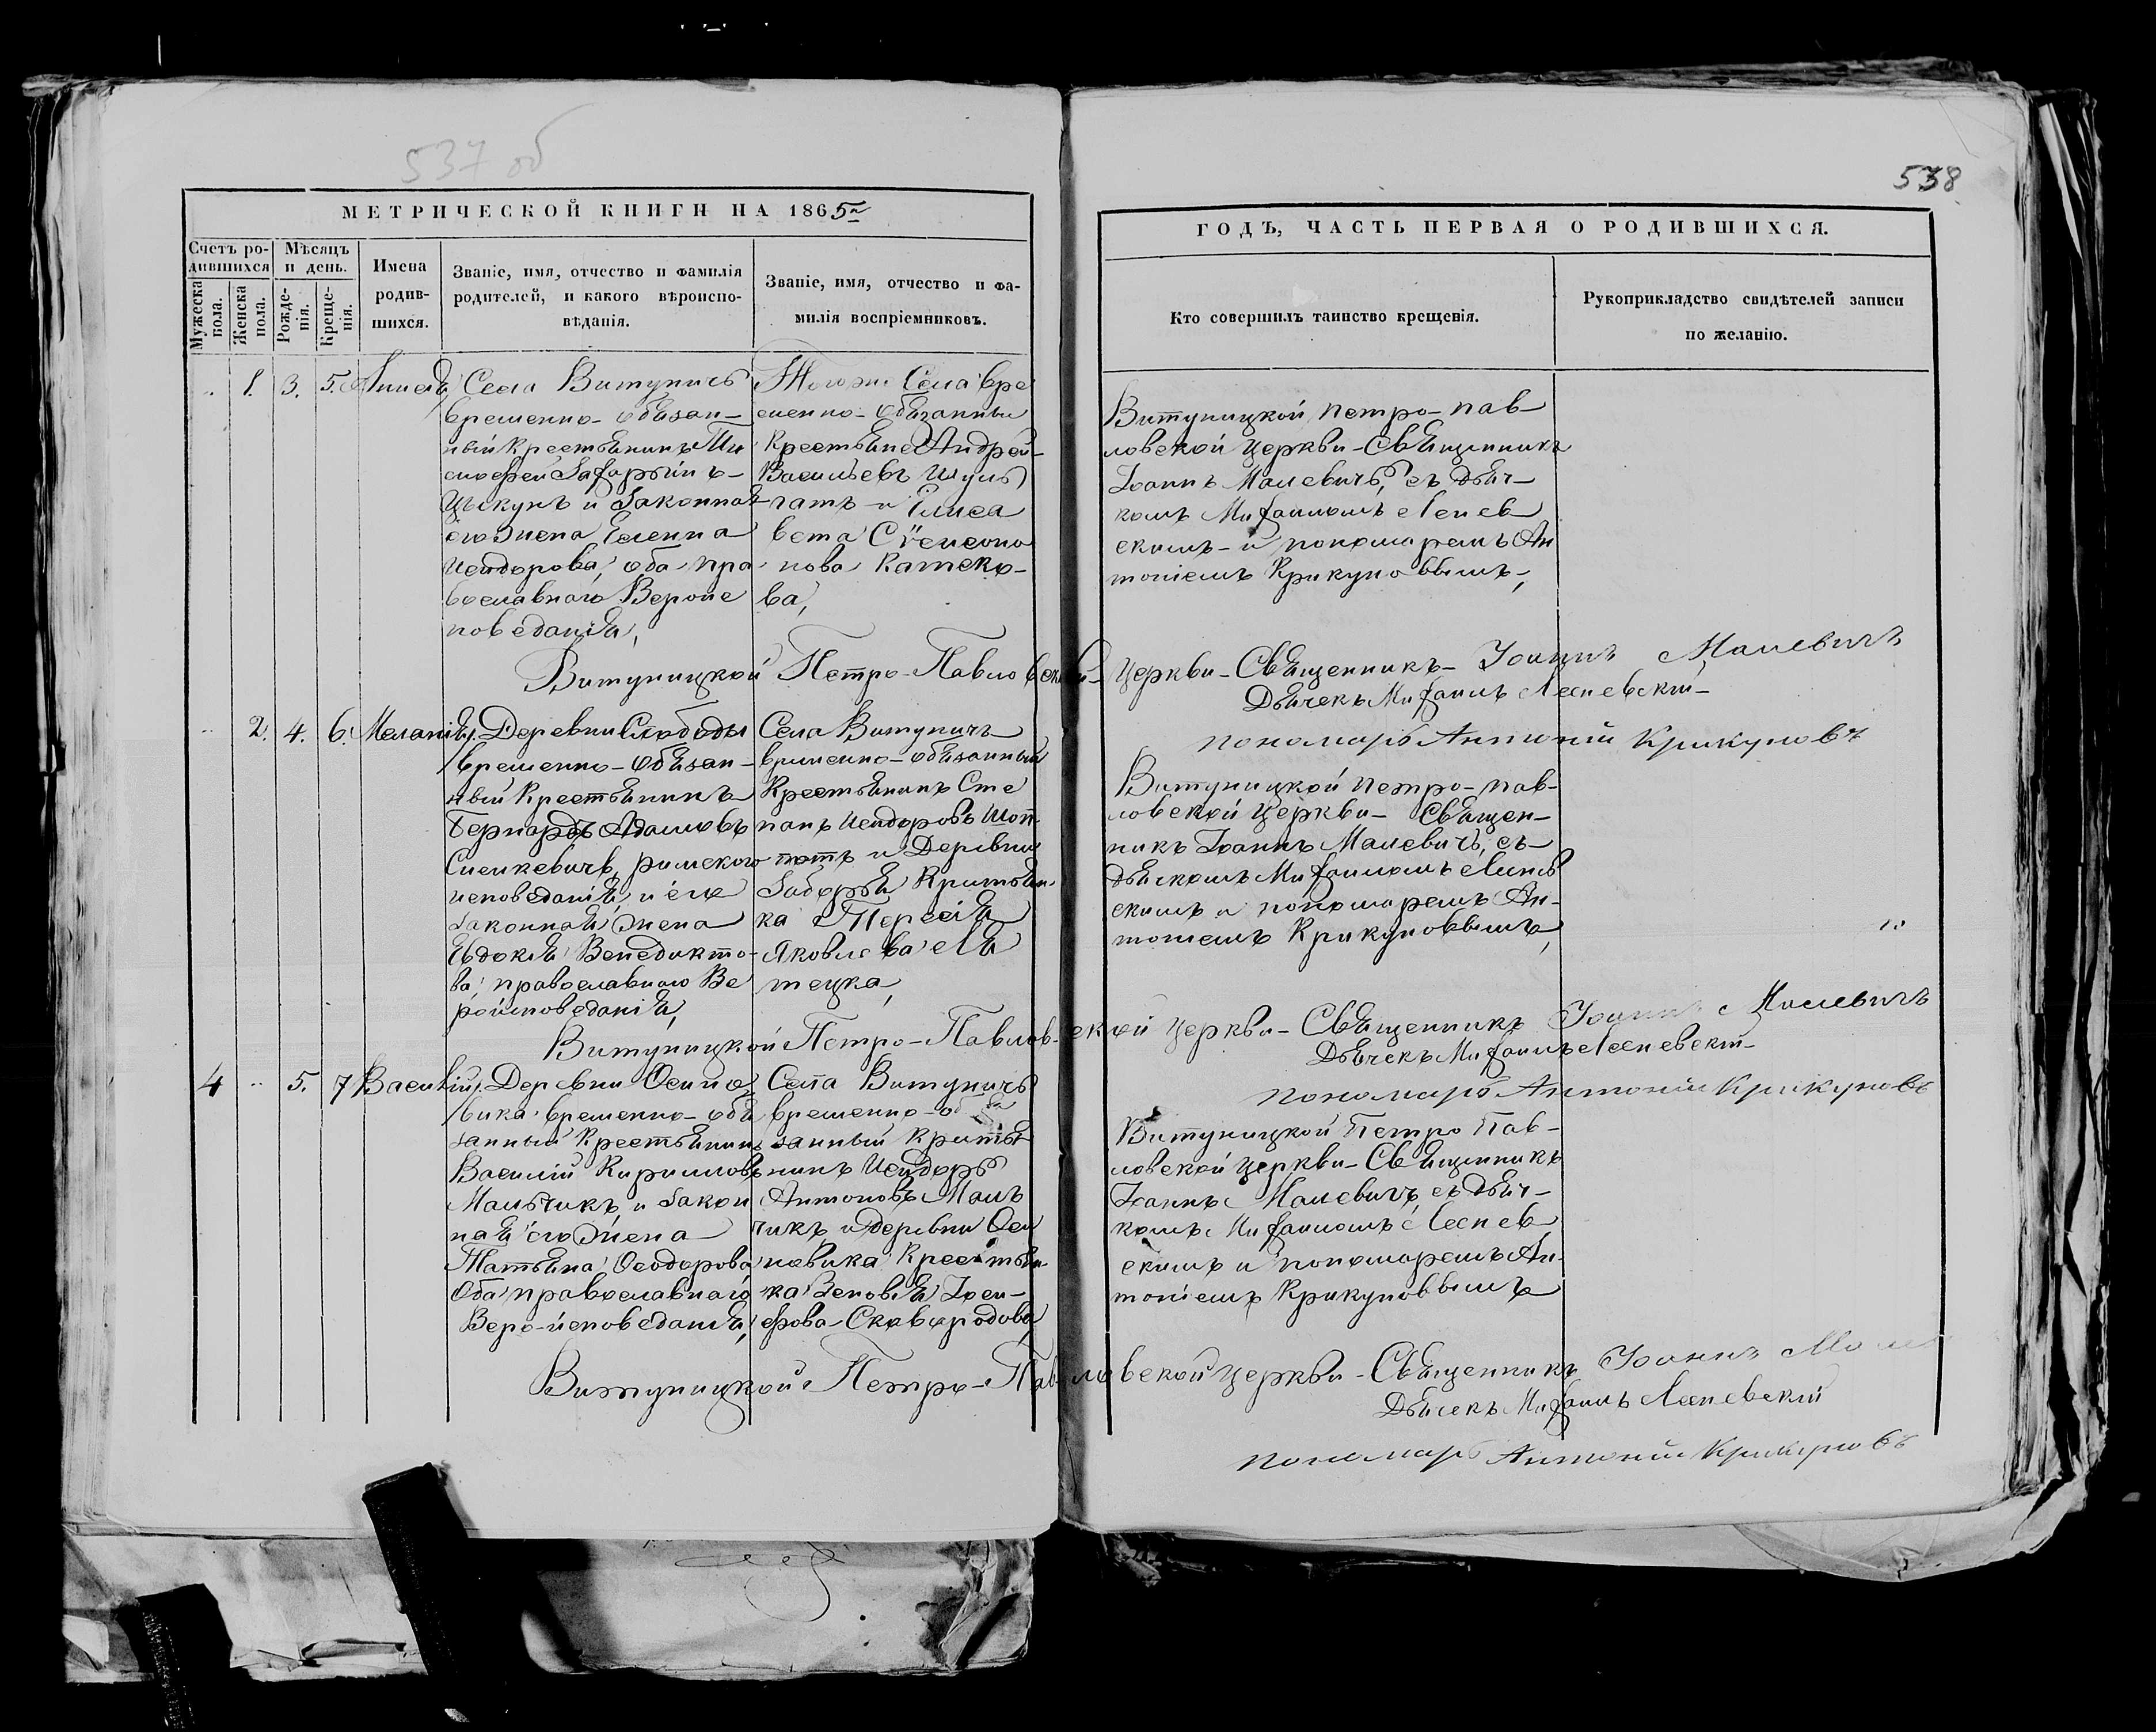 537 об
538
МЕТРИЧЕСКОЙ КНИГИ НА 1865
Счетъ ро-
дившихся
Мѣсяцъ
и день.
Имена
родив-
шихся.
Званіе, имя, отчество и фамилія
родителей, и какого вѣроиспо-
вѣданія.
Званіе, имя, отчество и фа-
милія воспріемниковъ.
Мужеска
пола.
Женска
пола.
Рожде-
нія.
Креще-
нія.
ГОДЪ, ЧАСТЬ ПЕРВАЯ О РОДИВШИХСЯ.
Кто совершилъ таинство крещенія.
Рукоприкладство свидѣтелей записи
по желанію.
1. 3. 5.
Села Витуничъ
временно-обязан-
ный Крестьянинъ Ти
мофей Захарьинъ-
Цыкунъ и Законная
его Жена Еленна
Исидорова, оба пра
вославнаго Вероис
поведанія,
Тогоже Села вре
менно-обязанныи
Крестьяне Андрей
Васильевъ Шуль
гатъ и Елиса
вета Сѵмеоно
нова Катеко-
ва,
Витуницкой петро-пав-
ловской церкви-Священникъ
Іоаннъ Малевичъ, съ дьяч-
комъ Михаиломъ Леснев
скимъ-и пономаремъ Ан
тоніемъ Крикуновымъ,
Витуницкой Петро-Павловской Церкви-Священникъ-Іоаннъ Малевичъ
Дьячекъ Михаилъ Лесневский-
пономарь Антоній Крикуновъ
2. 4. 6. Меланія,
Деревни Слободы
временно-обязан-
ный Крестьянинъ
Бернардъ Адамовъ
Сенкевичъ, римского
исповеданія, и его
законная Жена
Евдокія Венедикто-
ва, православнаго Ве
роисповеданія,
Села Витуничъ
временно-обязанный
Крестьянинъ Сте
панъ Исидоровъ Шоп
потъ и Деревни
Заборья Кристьян-
ка Персія
Яковлева Ля
тецка,
Витуницкой Петро-пав-
ловской Церкви- Священ-
никъ Іоаннъ Малевичъ, съ-
дьячкомъ Михаиломъ Леснев
скимъ и пономаремъ Ан-
тонiемъ Крикуновымъ,
Витуницкой Петро-Павловской Церкви-Священникъ Іоаннъ Малевичъ
Дьячекъ Михаилъ Лесневский-
пономарь Антоній Крикуновъ
4 5. 7 Василій,
Деревни Осино
вика временно-обя
занный Крестьянинъ
Василій Кирилловъ
Мальчикъ, и Закон
ная его Жена
Татьяна Ѳеодорова
Оба православнаго
Веро-исповеданія,
Села Витуничъ
временно-обя
занный Кристья
нинъ Исидоръ
Антоновъ Маль
чикъ, и деревни Оси
новика Крестьян-
ка Зеновія Іоси-
фова-Сковородова,
Витуницкой Петро Пав-
ловской церкви-Священникъ
Іоаннъ Малевичъ, съ дьяч-
комъ Михаиломъ Леснев
скимъ и пономаремъ Ан-
тоніемъ Крикуновымъ
Витуницкой Петро-Павловской Церкви-Священникъ Іоаннъ
Дьячекъ Михаилъ Лесневский
пономарь Антоній Крикуновъ